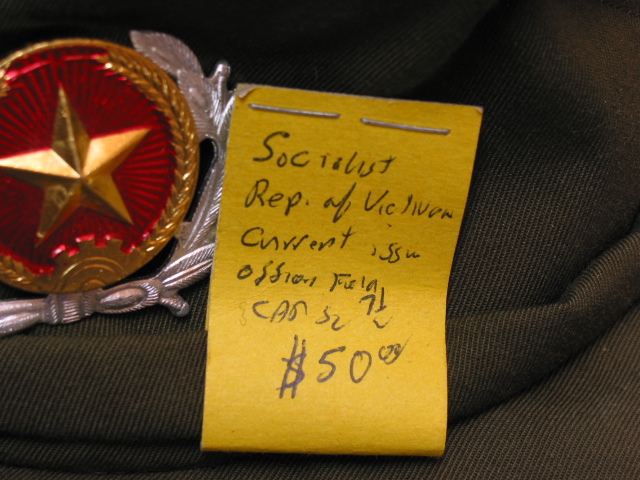 Socialist
Rep. of Vietnam
Current issue
officer Field
CAP Sz 7½
$50.00